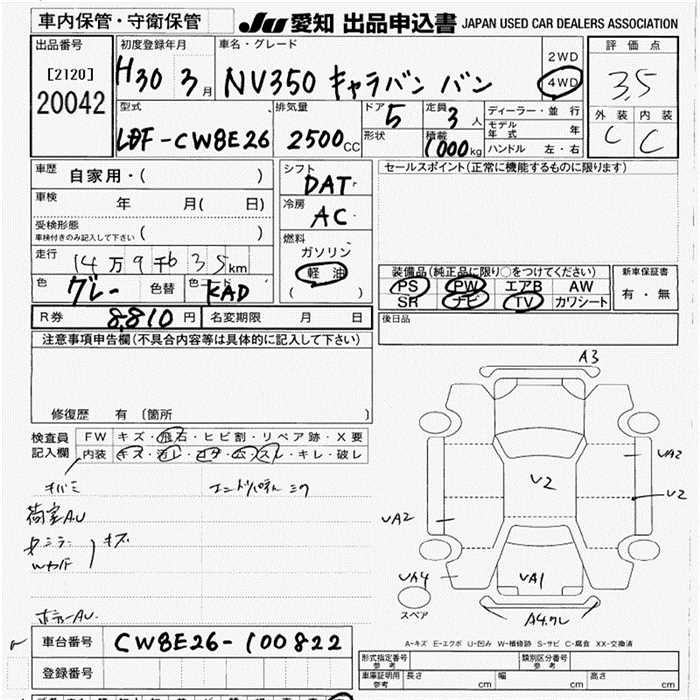 車内保管・守衛保管
JU 愛知 出品申込書 JAPAN USED CAR DEALERS ASSOCIATION
出品番号
[2120]
20042
初度登録年月
H30 3月
車名・グレード
NV350 キャラバン バン
2WD
4WD
評価点
3.5
外装 内装
C C
型式
LDF-CW8E26
排気量
2500CC
ドア 5
形状
定員 3人
積載 1000kg
ディーラー・並行
モデル年式 年
ハンドル 左・右
車歴
自家用・( )
車検 年 月( 日)
受検形態
車検付きのみ記入して下さい ( )
走行 14万9千635km
色 グレー 色替 色コード KAD
シフト
DAT
冷房
AC
燃料
ガソリン
軽油
( )
セールスポイント(正常に機能するものに限ります)
装備品(純正品に限り○をつけてください)
PS PW エアB AW
SR ナビ TV カワシート
新車保証書
有・無
R券 8,810円 名変期限 月 日
後日品
注意事項申告欄(不具合内容等は具体的に記入して下さい)
修復歴 有〔箇所 〕
検査員記入欄
FW キズ・飛石・ヒビ割・リペア跡・X要
内装 キズ・汚レ・コゲ・ムシ・スレ・キレ・破レ
荷室AU
キズ
A3
UA2
U2
U2
UA2
UA4
UA1
スペア
A-キズ E-エクボ U-凹み W-補修跡 S-サビ C-腐食 XX-交換済
車台番号 CW8E26-100822
登録番号
形式指定番号 参考
類別区分番号 参考
車庫証明用 参考 長さ cm 幅 cm 高さ cm